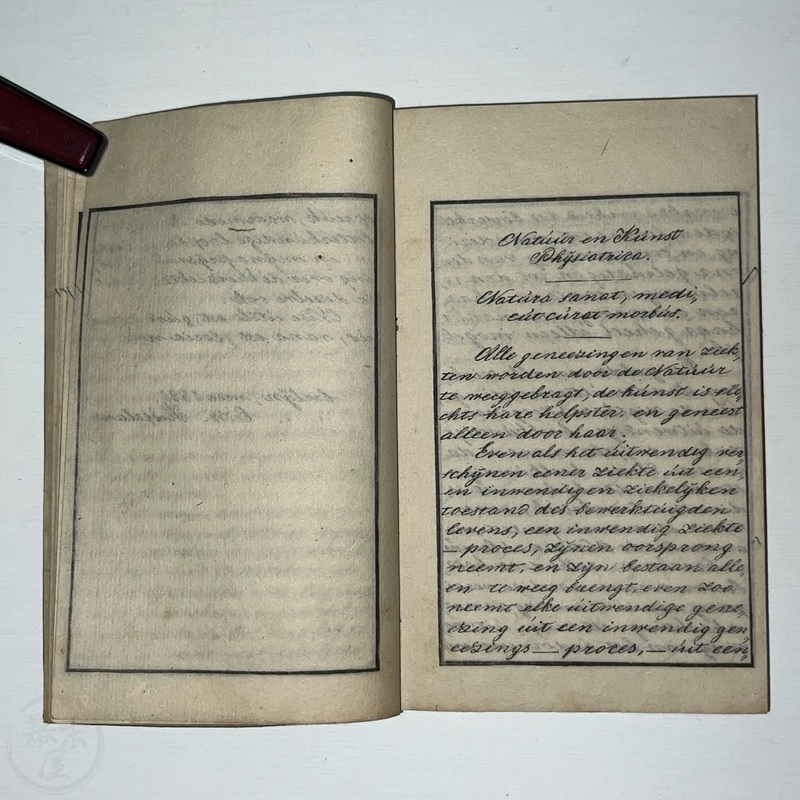 Natúúr en Kúnst
Physiatrica.
Natúra sanat, medi,
cút cúrat morbús.
Alle geneezingen van ziek,
ten worden door de Natúúr
te weeggebragt, de kúnst is sle,
chts hare helpster, en geneest
alleen door haar.
Even als het úitwendig ver,
schijnen eener ziekte úit een,
en inwendigen ziekelijken
toestand des bewerktúigden
levens, een inwendig ziekte
— proces, zijnen oorsprong
neemt, en zijn bestaan alle,
en te weeg buengt, even zoo
neemt elke úitwendige gene,
ezing úit een inwendig gen,
eezings — proces, — úit een,